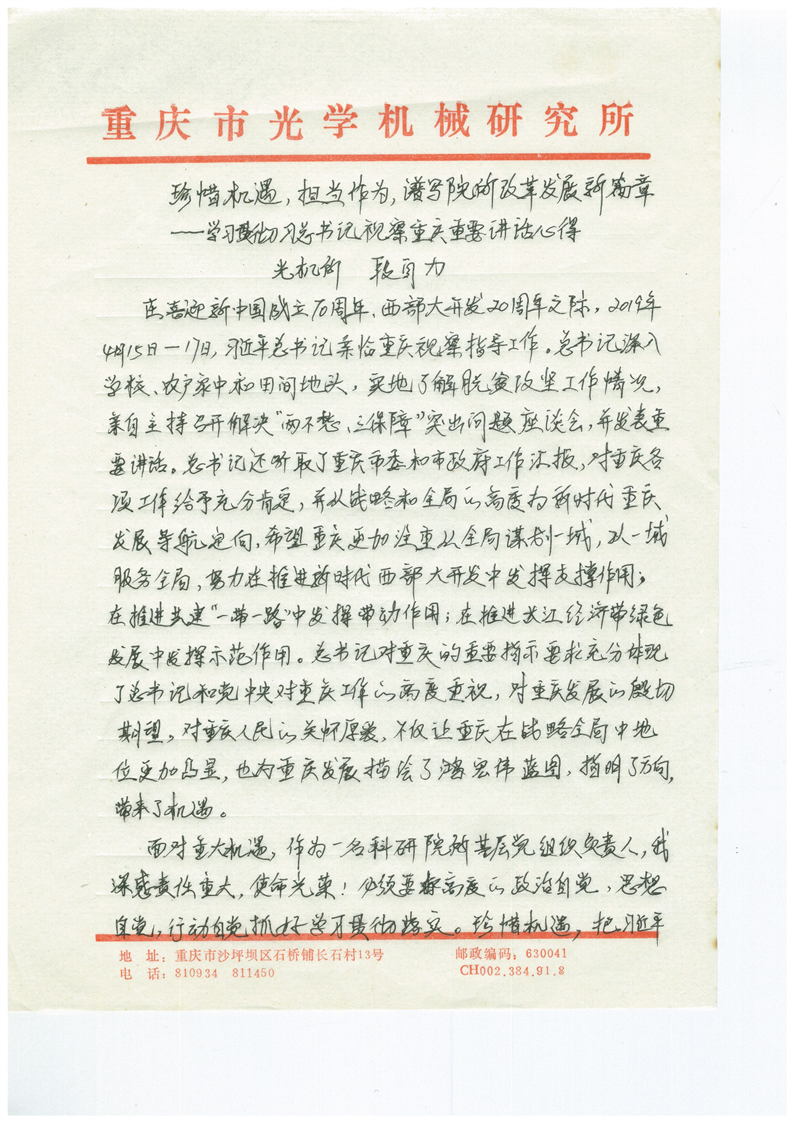 重庆市光学机械研究所
珍惜机遇，担当作为，谱写院所改革发展新篇章
——学习贯彻习总书记视察重庆重要讲话心得
光机所 段自力
在喜迎新中国成立70周年、西部大开发20周年之际，2019年
4月15日—17日，习近平总书记亲临重庆视察指导工作。总书记深入
学校、农户家中和田间地头，实地了解脱贫攻坚工作情况，
亲自主持召开解决“两不愁、三保障”突出问题座谈会，并发表重
要讲话。总书记还听取了重庆市委和市政府工作汇报，对重庆各
项工作给予充分肯定，并从战略和全局的高度为新时代重庆
发展导航定向，希望重庆更加注重从全局谋划一域，以一域
服务全局，努力在推进新时代西部大开发中发挥支撑作用；
在推进共建“一带一路”中发挥带动作用；在推进长江经济带绿色
发展中发挥示范作用。总书记对重庆的重要指示要求充分体现
了总书记和党中央对重庆工作的高度重视，对重庆发展的殷切
期望，对重庆人民的关怀厚爱，不仅让重庆在战略全局中地
位更加凸显，也为重庆发展描绘了鸿宏伟蓝图，指明了方向，
带来了机遇。
面对重大机遇，作为一名科研院所基层党组织负责人，我
深感责任重大，使命光荣！必须要高度的政治自觉，思想
自觉，行动自觉抓好学习贯彻落实。珍惜机遇，把习近平
地 址：重庆市沙坪坝区石桥铺长石村13号 邮政编码：630041
电 话：810934 811450 CH002.384.91.8